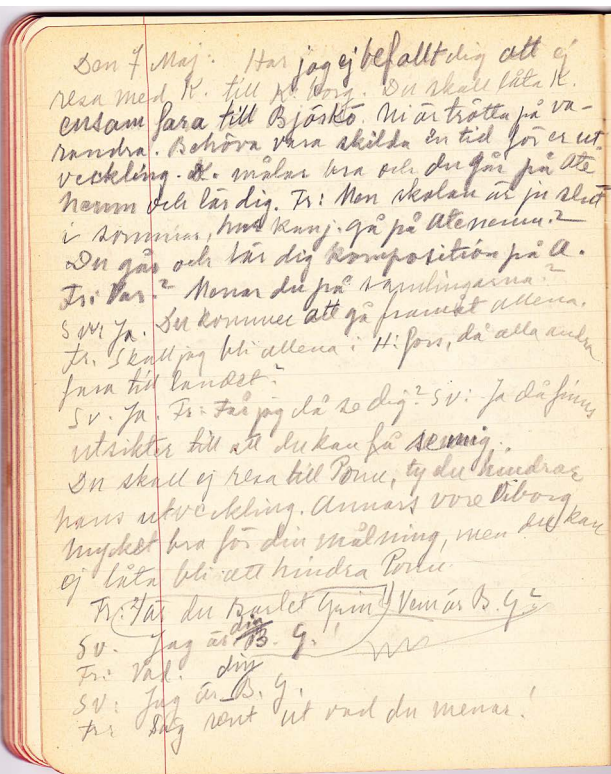 Den 7 Maj. Har jag ej befallt dig att ej
resa med K. till K. borg. Du skall låta K.
ensam fara till Björkö. Ni är trötta på va-
randra. Behöva vara skilda en tid för er ut-
veckling. K. målar bra och du går på Ate
neum och lär dig. Fr: Men skolan är ju slut
i sommar, hur kan j. gå på Ateneum?
Du går och lär dig komposition på A.
Fr: Var? Menar du på samlingarna?
Sv: Ja. Du kommer att gå framåt allena.
Fr. Skall jag bli allena i H:fors, då alla andra
fara till landet?
Sv. Ja. Fr: Får jag då se dig? Sv: Ja då finns
utsikter till att du kan få se mig.
Du skall ej resa till Pomu, ty du hindrar
hans utveckling. Annars vore Viborg
mycket bra för din målning, men du kan
ej låta bli att hindra Pomu.
Fr: Är du Barlet Grim? Vem är B. G?
Sv. Jag är din B. G.!
Fr: Vad.
Sv: Jag är din B. G.
Fr: Säg rent ut vad du menar!